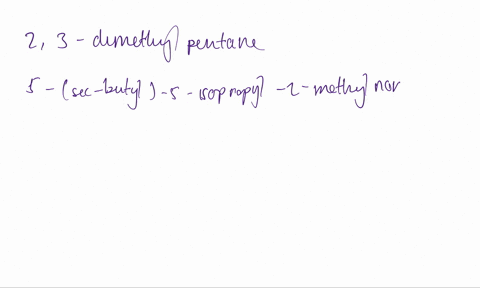 2, 3 - dimethyl pentane
5 - (sec-butyl) - 5 - isopropyl - 2 - methyl non